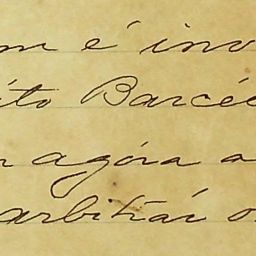 m é inv
ito Barcé
r agóra a
arbitrár o